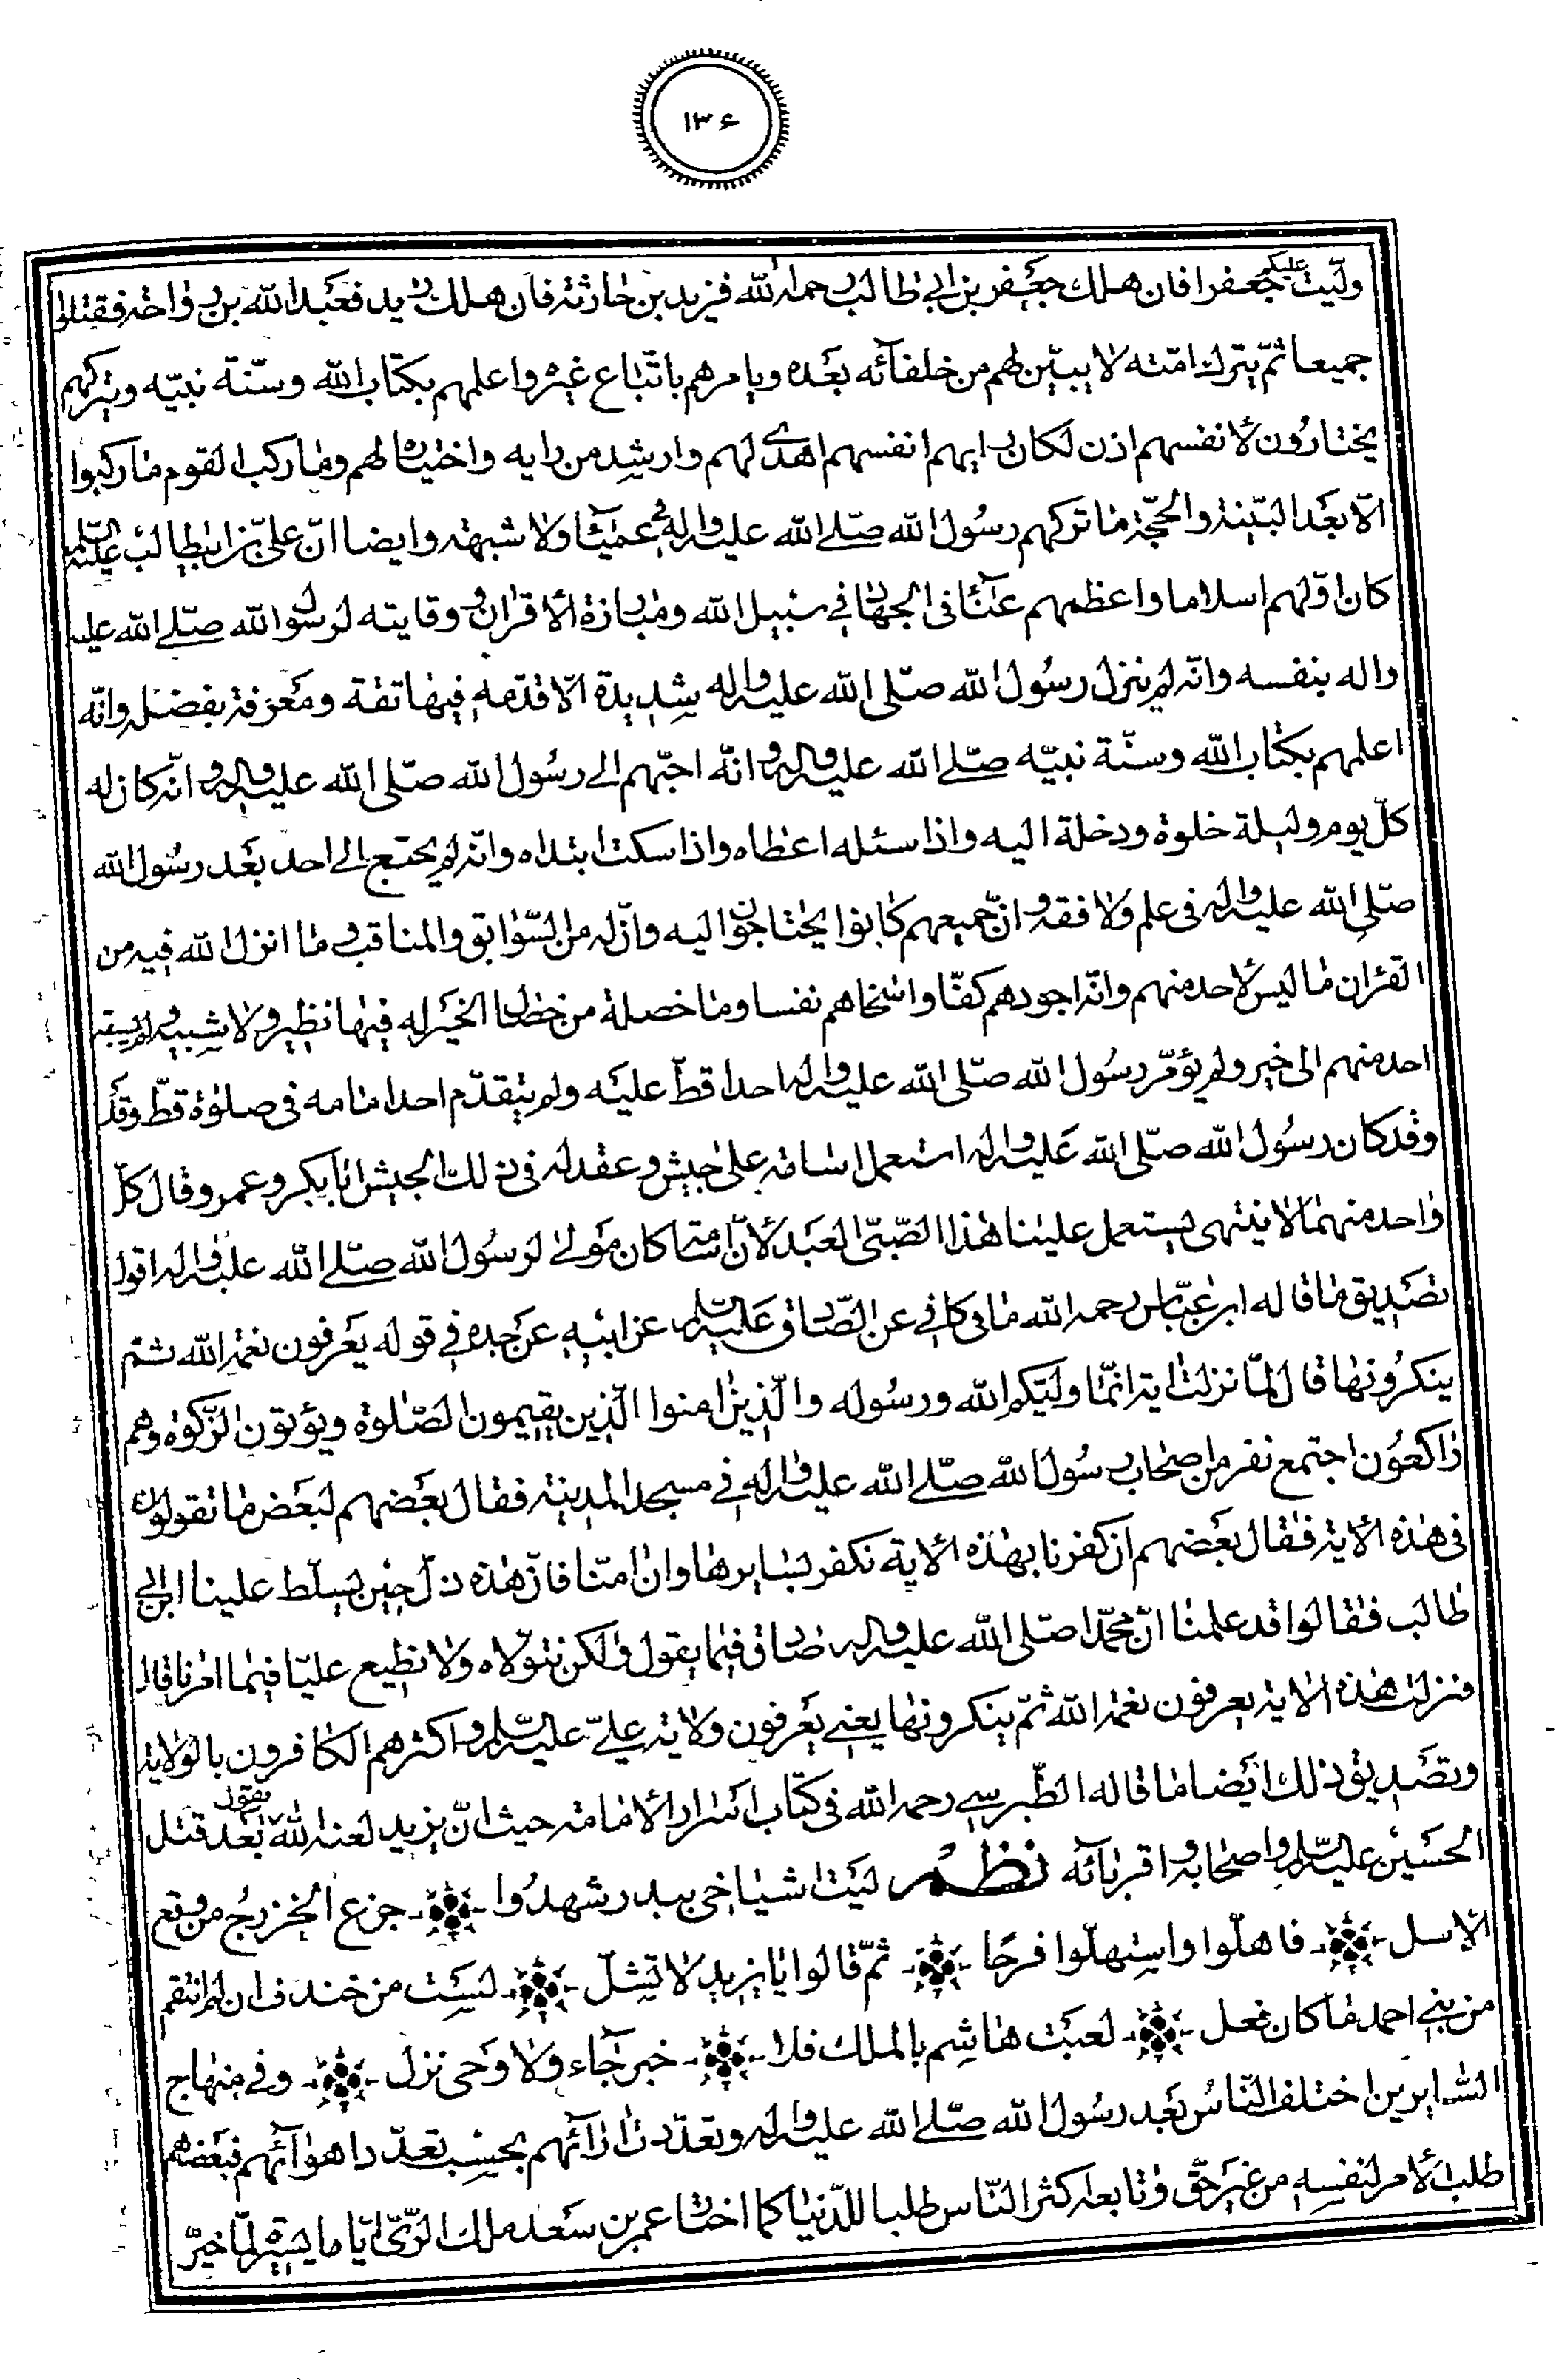 ۱۳۶
ولّيت عليكم جعفرا فان هلك جعفر بن ابي طالب رحمه الله فزيد بن حارثة فان هلك زيد فعبد الله بن رواحة فقتلوا
جميعا ثمّ يترك امّته لا يبيّن لهم من خلفائه بعده ويامرهم باتّباع غيره واعلمهم بكتاب الله وسنّة نبيّه ويتركهم
يختارون لأنفسهم اذن لكان رايهم انفسهم اهدى لهم وارشد من رايه واختياره لهم وما ركب القوم ما ركبوا
الّا بعد البيّنة والحجّة ما تركهم رسول الله صلّى الله عليه واله في عمياء ولا شبهة وايضا انّ علىّ بن ابيطالب عليه السّلم
كان اوّلهم اسلاما واعظمهم عناء فى الجهاد في سبيل الله ومبارزة الأقران ووقايته لرسول الله صلّى الله عليه
واله بنفسه وانّه لم ينزل رسول الله صلّى الله عليه واله شديدة الّا قدّمه فيها ثقة ومعرفة بفضله وانّه
اعلمهم بكتاب الله وسنّة نبيّه صلّى الله عليه واله وانّه احبّهم الى رسول الله صلّى الله عليه واله وانّه كان له
كلّ يوم وليلة خلوة ودخلة اليه واذا سئله اعطاه واذا سكت ابتداه وانّه لم يحتج الى احد بعد رسول الله
صلّى الله عليه واله فى علم ولا فقه وانّ جميعهم كانوا يحتاجون اليه وانّ له من السّوابق والمناقب وما انزل الله فيه من
القرءان ما ليس لأحد منهم وانّه اجودهم كفّا واسخاهم نفسا وما خصلة من خصال الخير له فيها نظير ولا شبيه ولم يسبقه
احد منهم الى خير ولم يؤمّر رسول الله صلّى الله عليه واله احدا قطّ عليه ولم يتقدّم احد امامه فى صلوة قطّ وقد
وقد كان رسول الله صلّى الله عليه واله استعمل اسامة على جيش وعقد له فى ذلك الجيش ابا بكر وعمر وقال كلّ
واحد منهما لا ينتهى يستعمل علينا هذا الصّبىّ العبد لأنّ اسامة كان مولى لرسول الله صلّى الله عليه واله اقول
تصديق ما قاله ابن عبّاس رحمه الله ما فى كافي عن الصّادق عليه السّلم عن ابيه عن جدّه في قوله يعرفون نعمة الله ثمّ
ينكرونها قال لمّا نزلت اية انّما وليّكم الله ورسوله والّذين امنوا الّذين يقيمون الصّلوة ويؤتون الزّكوة وهم
راكعون اجتمع نفر من اصحاب رسول الله صلّى الله عليه واله في مسجد المدينة فقال بعضهم لبعض ما تقولون
فى هذه الأية فقال بعضهم ان كفرنا بهذه الأية نكفر بسايرها وان امنّا فانّ هذه ذلّ حين يسلّط علينا ابن ابي
طالب فقالوا قد علمنا انّ محمّدا صلّى الله عليه واله صادق فيما يقول ولكن نتولّاه ولا نطيع عليّا فيما امرنا قال
فنزلت هذه الأية يعرفون نعمة الله ثمّ ينكرونها يعنى يعرفون ولاية علىّ عليه السّلم واكثرهم الكافرون بالولاية
وتصديق ذلك ايضا ما قاله الطّبرسي رحمه الله فى كتاب اسرار الأمامة حيث انّ يزيد لعنه الله يقول بعد قتل
الحسين عليه السّلم واصحابه واقربائه نظم ليت اشياخي ببدر شهدوا جزع الخزرج من وقع
الأسل فاهلّوا واستهلّوا فرحا ثمّ قالوا يا يزيد لا تشلّ لست من خندف ان لم انتقم
من بني احمد ما كان فعل لعبت هاشم بالملك فلا خبر جاء ولا وحى نزل وفي منهاج
السّايرين اختلف النّاس بعد رسول الله صلّى الله عليه واله وتعدّدت ارائهم بحسب تعدّد اهوائهم فبعضهم
طلب الأمر لنفسه من غير حقّ وتابعه اكثر النّاس طلبا للدّنيا كما اختار عمر بن سعد ملك الرّىّ ايّاما يسيرة لمّا خيّر